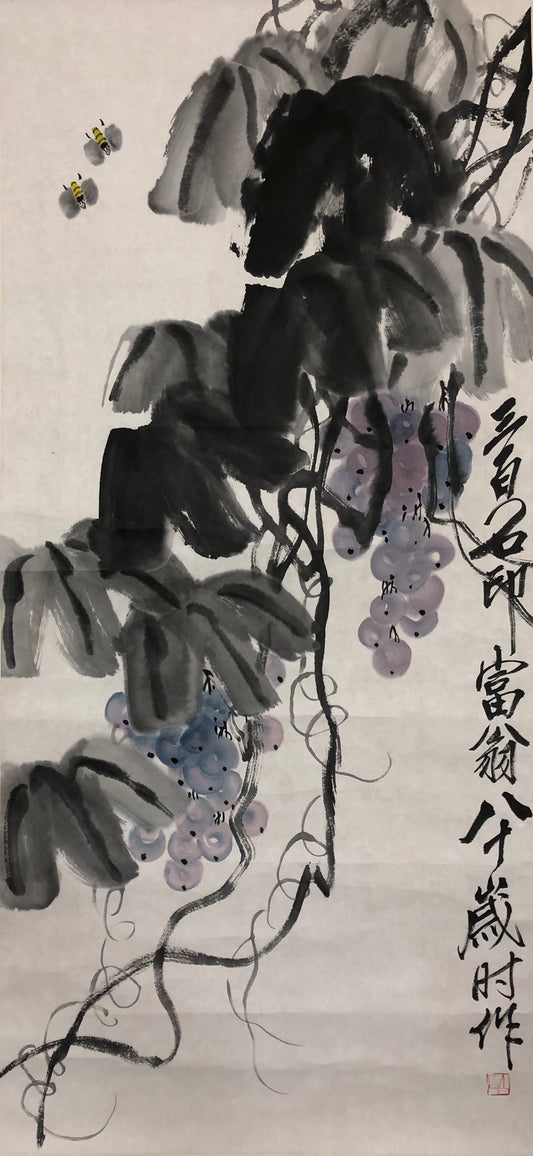 三百石印富翁八十歲时作